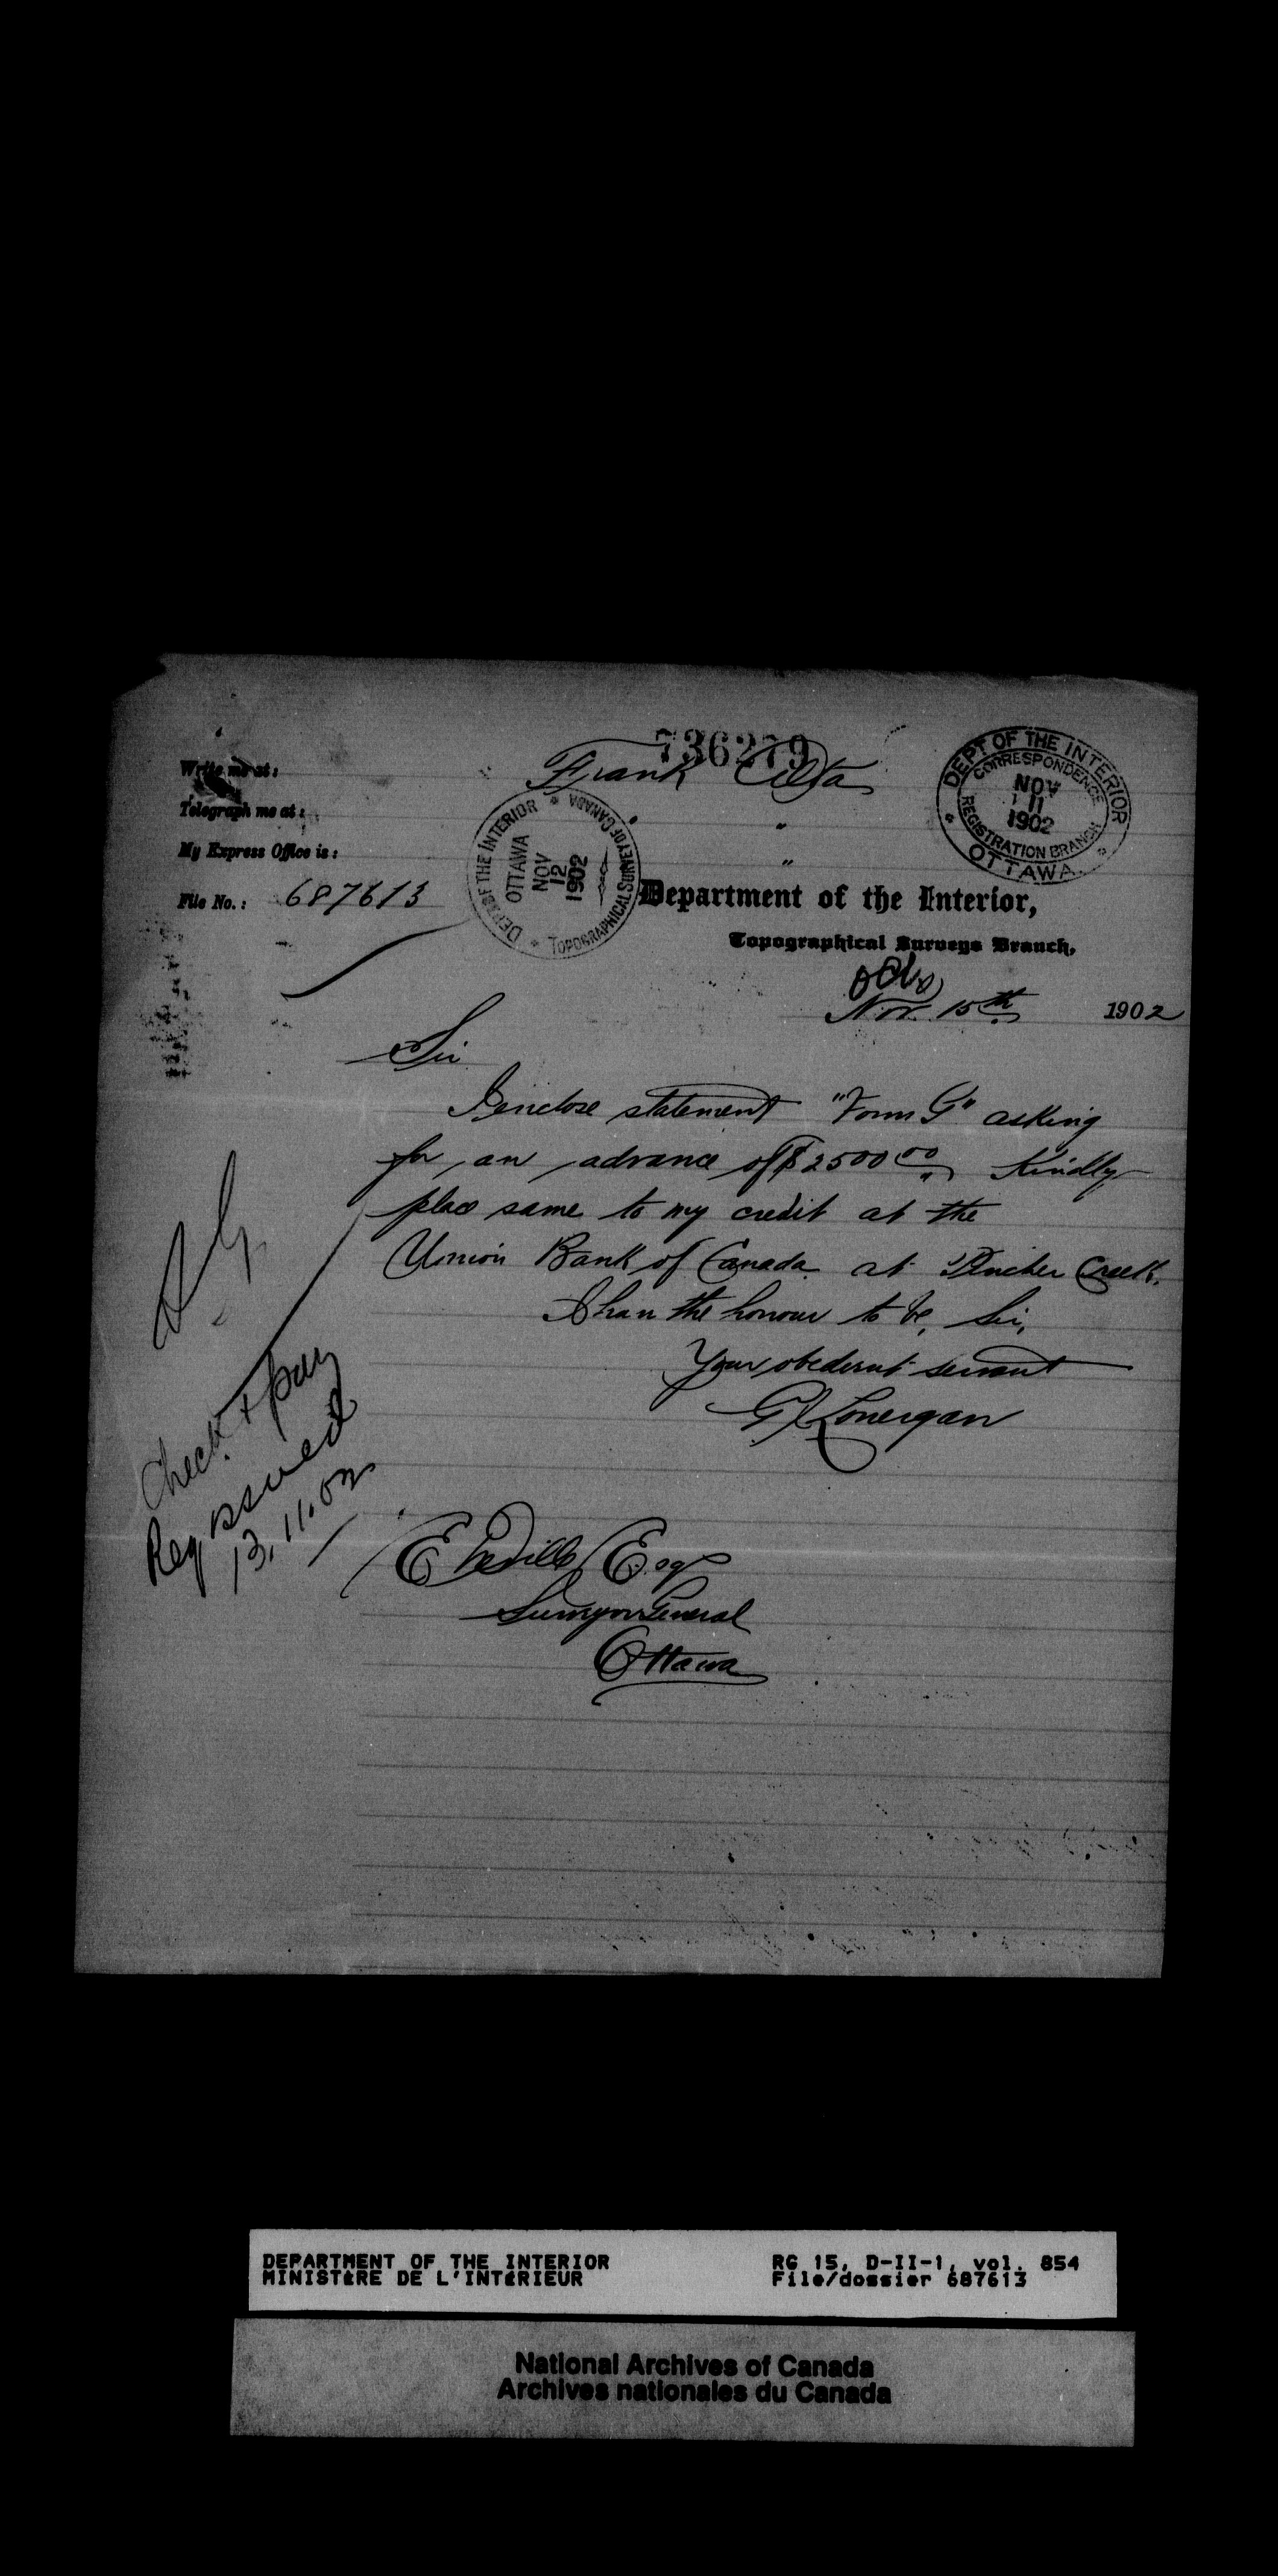 736279
Write me at: Frank Alta
Telegraph me at: "
My Express Office is: "
File No.: 687613
DEPT OF THE INTERIOR
CORRESPONDENCE
NOV
11
1902
REGISTRATION BRANCH
OTTAWA.
DEPT OF THE INTERIOR
OTTAWA
NOV
12
1902
TOPOGRAPHICAL SURVEY OF CANADA
Department of the Interior,
Topographical Surveys Branch,
Nov. 15th 1902
Sir
I enclose statement "Form G" asking
for an advance of $2500.00 Kindly
place same to my credit at the
Union Bank of Canada at Pincher Creek.
I have the honour to be, Sir,
Your obedient servant
G Lonergan
Check & pay
Req issued
13.11.02
E Deville Esq
Surveyor General
Ottawa
DEPARTMENT OF THE INTERIOR
MINISTÈRE DE L'INTÉRIEUR
RG 15, D-II-1, vol. 854
File/dossier 687613
National Archives of Canada
Archives nationales du Canada